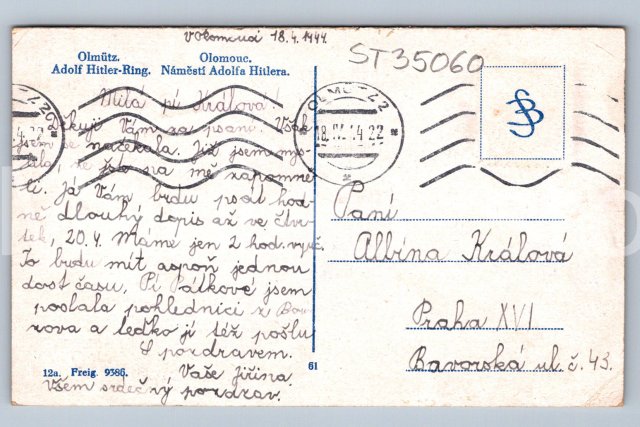 V Olomouci 18.4.1944.
ST35060
Olmütz. Olomouc.
Adolf Hitler-Ring. Náměstí Adolfa Hitlera.
OLMÜTZ 2
18.IV.44 22
Milá pí Králová!
Děkuji Vám za psaní. Však
jsem se načekala. Již jsem mys-
lela, že jste na mě zapomně-
li. Já Vám budu psát hod-
ně dlouhý dopis až ve čtvr-
tek, 20.4. Máme jen 2 hod. vyuč.
To budu mít aspoň jednou
dost času. Pí Pátkové jsem
poslala pohlednici z
a leďko jí též pošlu
S pozdravem.
Vaše Jiřina.
Všem srdečný pozdrav.
Paní
Albína Králová
Praha XVI
Bavorská ul. č. 43.
12a. Freig. 9386.
61